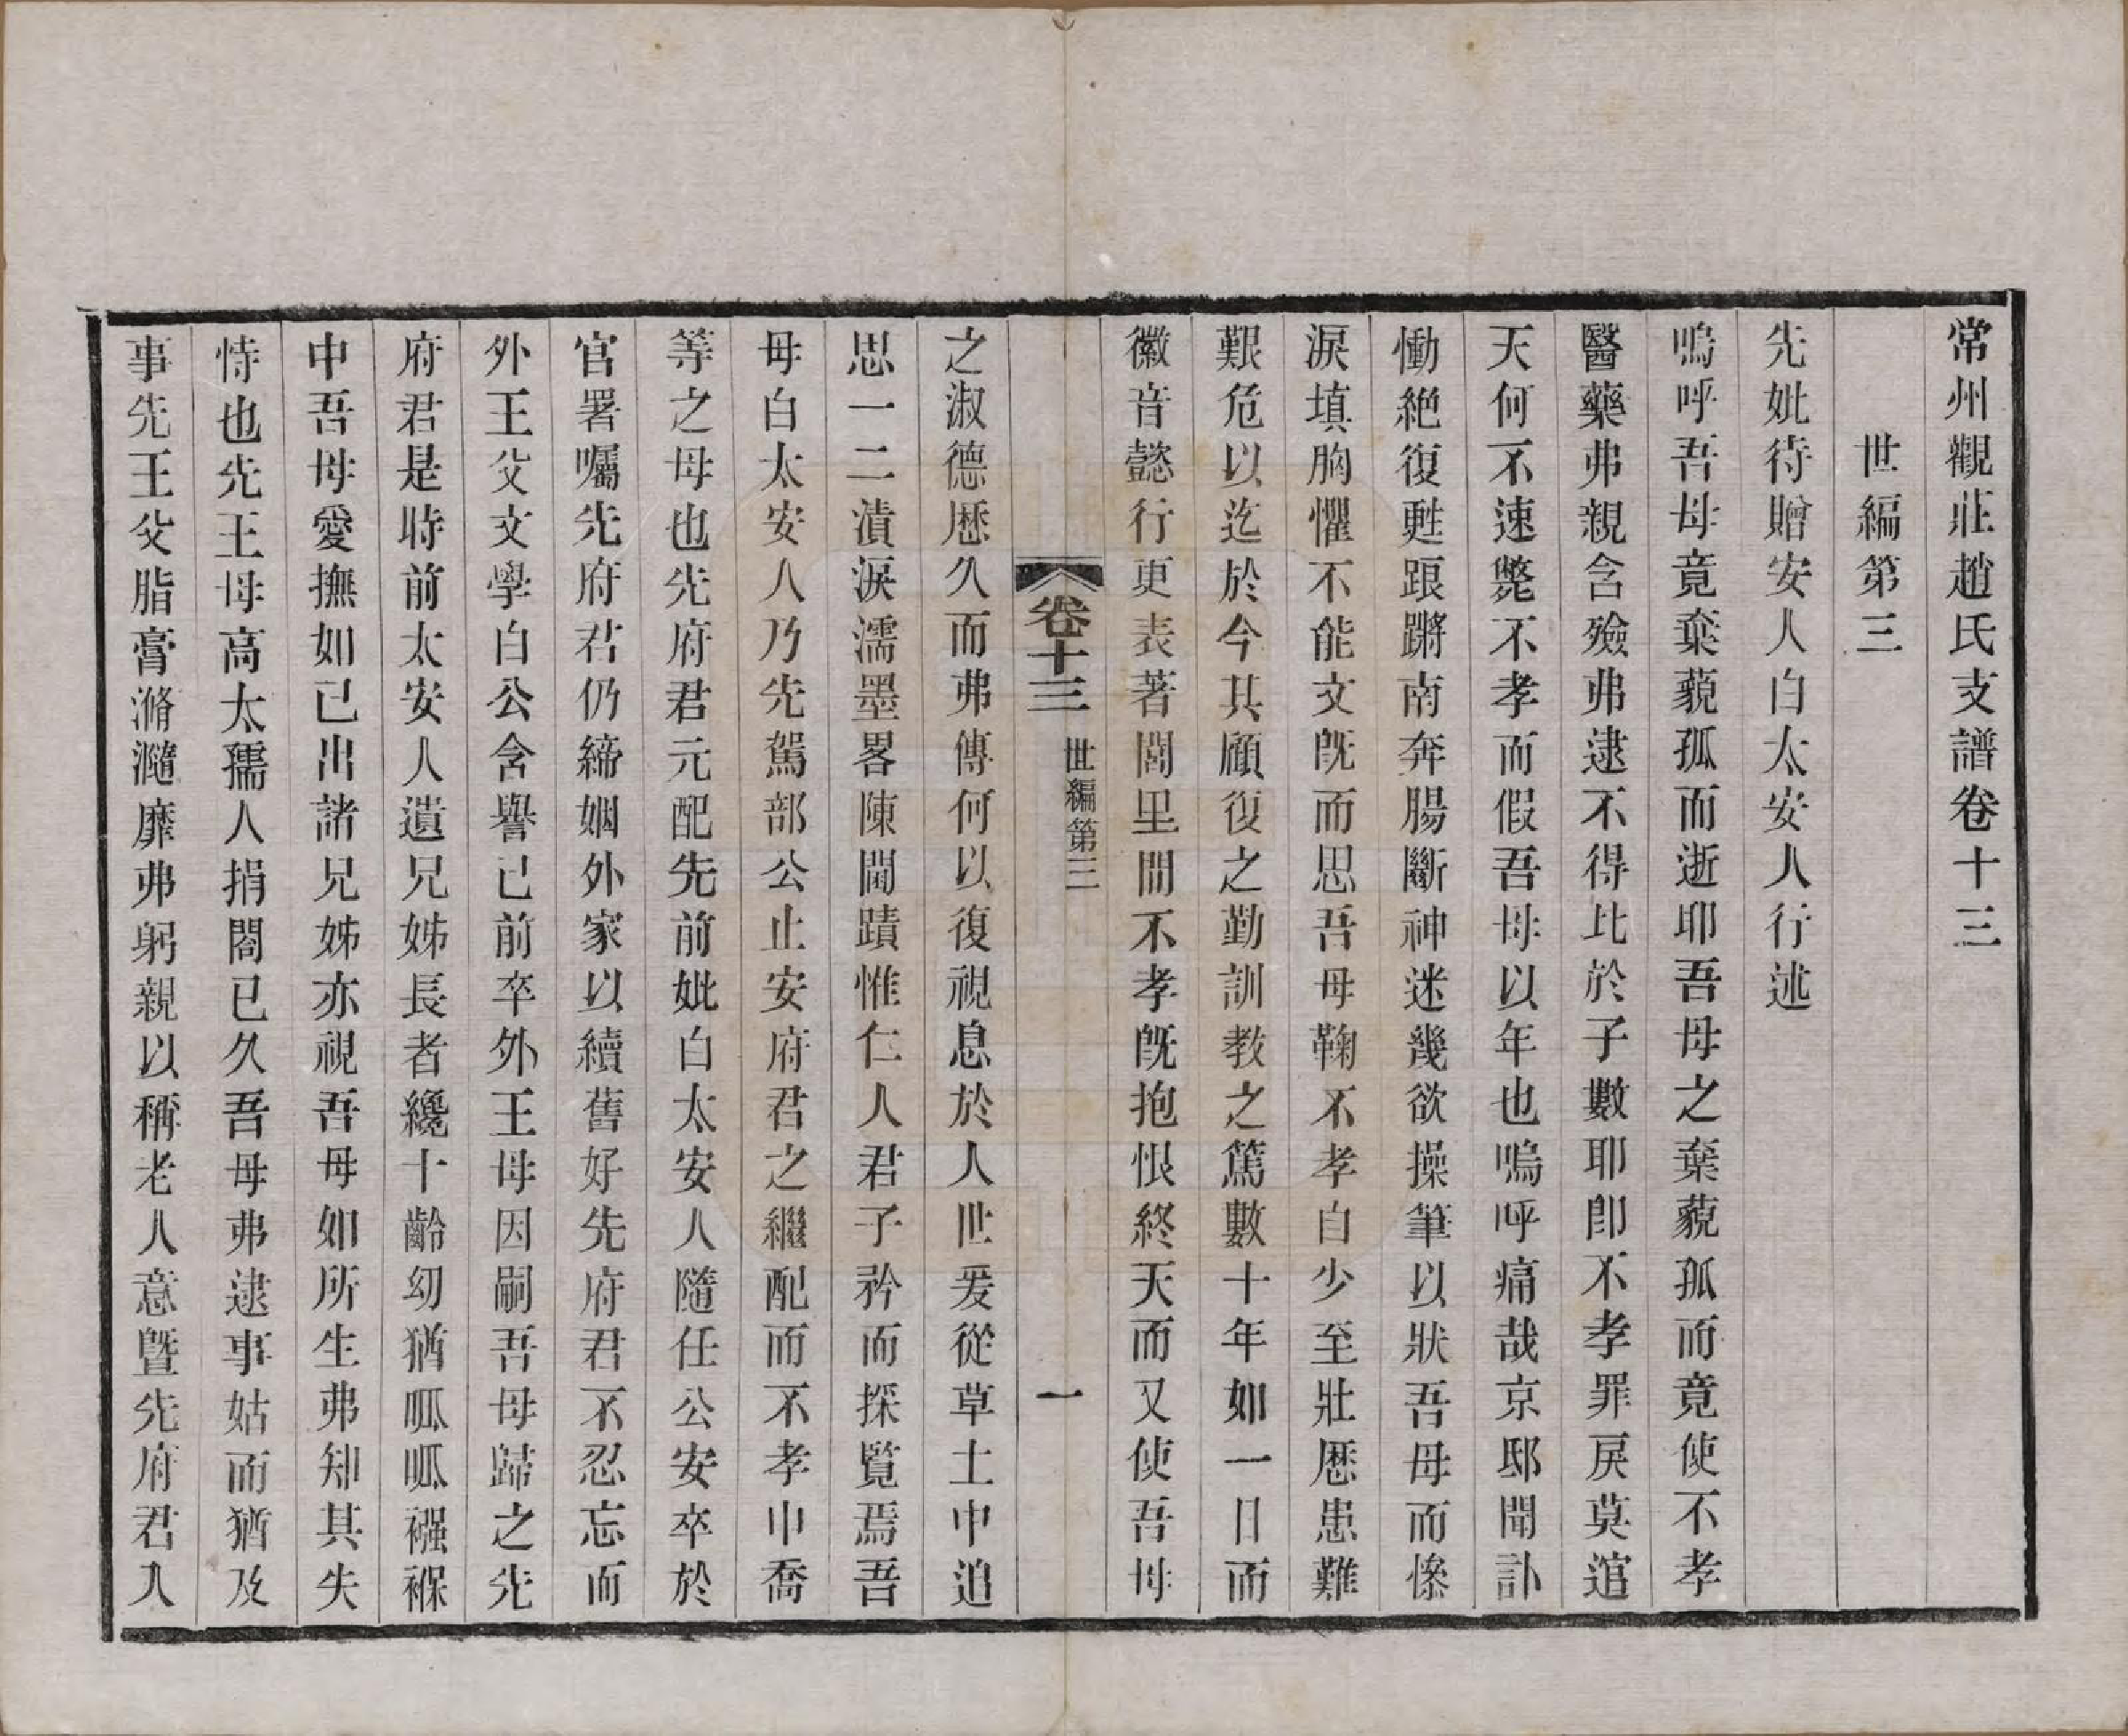 常州觀莊趙氏支譜卷十三
世編第三
先妣待贈安人白太安人行述
嗚呼吾母竟棄藐孤而逝耶吾母之棄藐孤而竟使不孝
醫藥弗親含殮弗逮不得比於子數耶卽不孝罪戾莫逭
天何不速斃不孝而假吾母以年也嗚呼痛哉京邸聞訃
慟絶復甦踉蹡南奔腸斷神迷幾欲操筆以狀吾母而慘
淚填胸懼不能文旣而思吾母鞠不孝自少至壯歷患難
艱危以迄於今其顧復之勤訓教之篤數十年如一日而
徽音懿行更表著閭里間不孝旣抱恨終天而又使吾母
卷十三 世編第三 一
之淑德歷久而弗傳何以復視息於人世爰從草土中追
思一二漬淚濡墨畧陳閫蹟惟仁人君子矜而採覽焉吾
母白太安人乃先駕部公止安府君之繼配而不孝申喬
等之母也先府君元配先前妣白太安人隨任公安卒於
官署囑先府君仍締姻外家以續舊好先府君不忍忘而
外王父文學白公含譽已前卒外王母因嗣吾母歸之先
府君是時前太安人遺兄姊長者纔十齡幼猶呱呱襁褓
中吾母愛撫如已出諸兄姊亦視吾母如所生弗知其失
恃也先王母高太孺人捐閤已久吾母弗逮事姑而猶及
事先王父脂膏滫瀡靡弗躬親以稱老人意曁先府君入